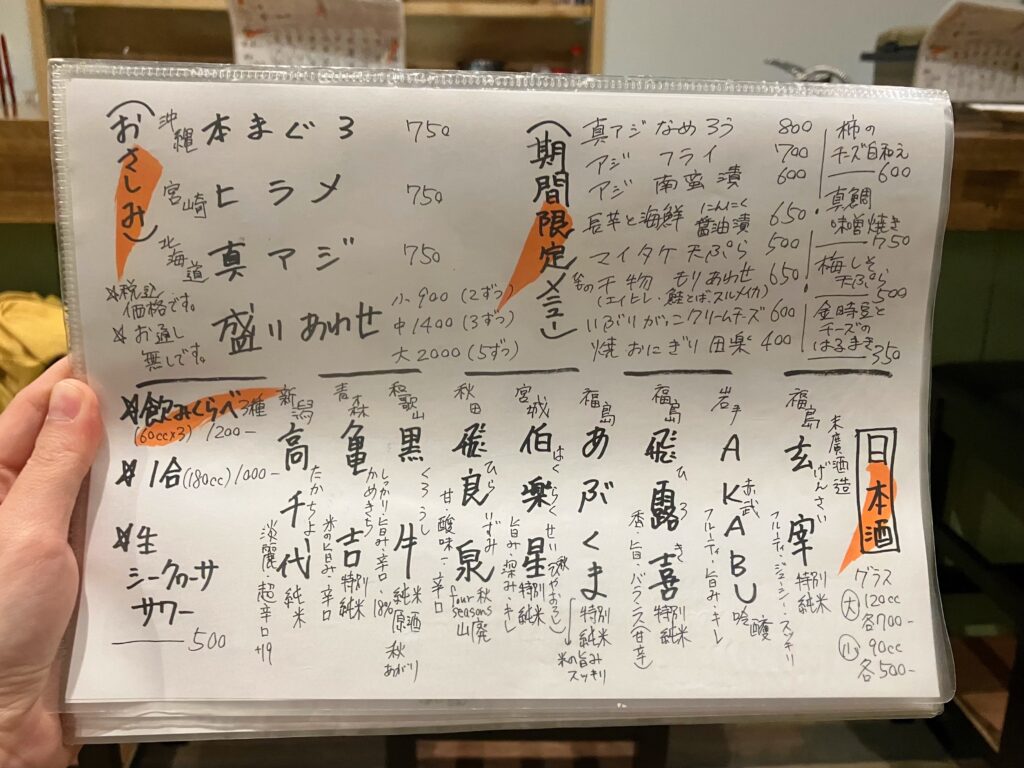 (おさしみ)
沖縄 本まぐろ 750
宮崎 ヒラメ 750
北海道 真アジ 750
盛りあわせ
小 900 (2ずつ)
中 1400 (3ずつ)
大 2000 (5ずつ)
☆税込価格です。
☆お通し無しです。
(期間限定メニュー)
真アジ なめろう 800
アジ フライ 700
アジ 南蛮漬 600
長芋と海鮮 にんにく醤油漬 650
マイタケ天ぷら 500
干物 もりあわせ 650
(エイヒレ・鮭とば・スルメイカ)
いぶりがっこクリームチーズ 600
焼おにぎり田楽 400
柿の
チーズ白和え
600
真鯛
味噌焼き
750
梅しそ
天ぷら
500
金時豆と
チーズの
はるまき
350
日本酒
グラス
大 120cc
各700-
小 90cc
各500-
末廣酒造
福島 玄宰 げんさい 特別純米
フルーティ・ジューシー・スッキリ
岩手 AKABU 赤武 吟醸
フルーティ・旨み・キレ
福島 飛露喜 ひろき 特別純米
香・旨・バランス(甘辛)
福島 あぶくま 特別純米
米の旨みスッキリ
宮城 伯楽星 はくらくせい 特別純米
(秋ひやおろし)
旨み・深み・キレ
秋田 飛良泉 ひらいずみ four seasons 秋 山廃
甘・酸味・辛口
和歌山 黒牛 くろうし 純米原酒 秋あがり
しっかり旨み・辛口・18%
青森 亀吉 かめきち 特別純米
米の旨み・辛口
新潟 高千代 たかちよ 純米
淡麗 超辛口+19
☆飲みくらべ3種
(60cc×3) 1200-
☆1合(180cc) 1000-
☆生
シークワーサー
サワー
500